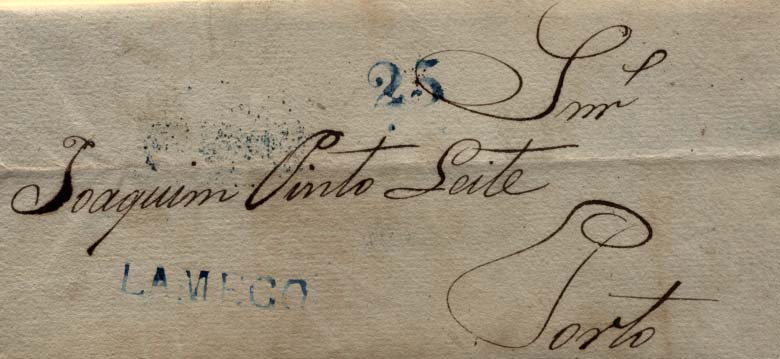 25
Snr
Joaquim Pinto Leite
LAMEGO
Porto